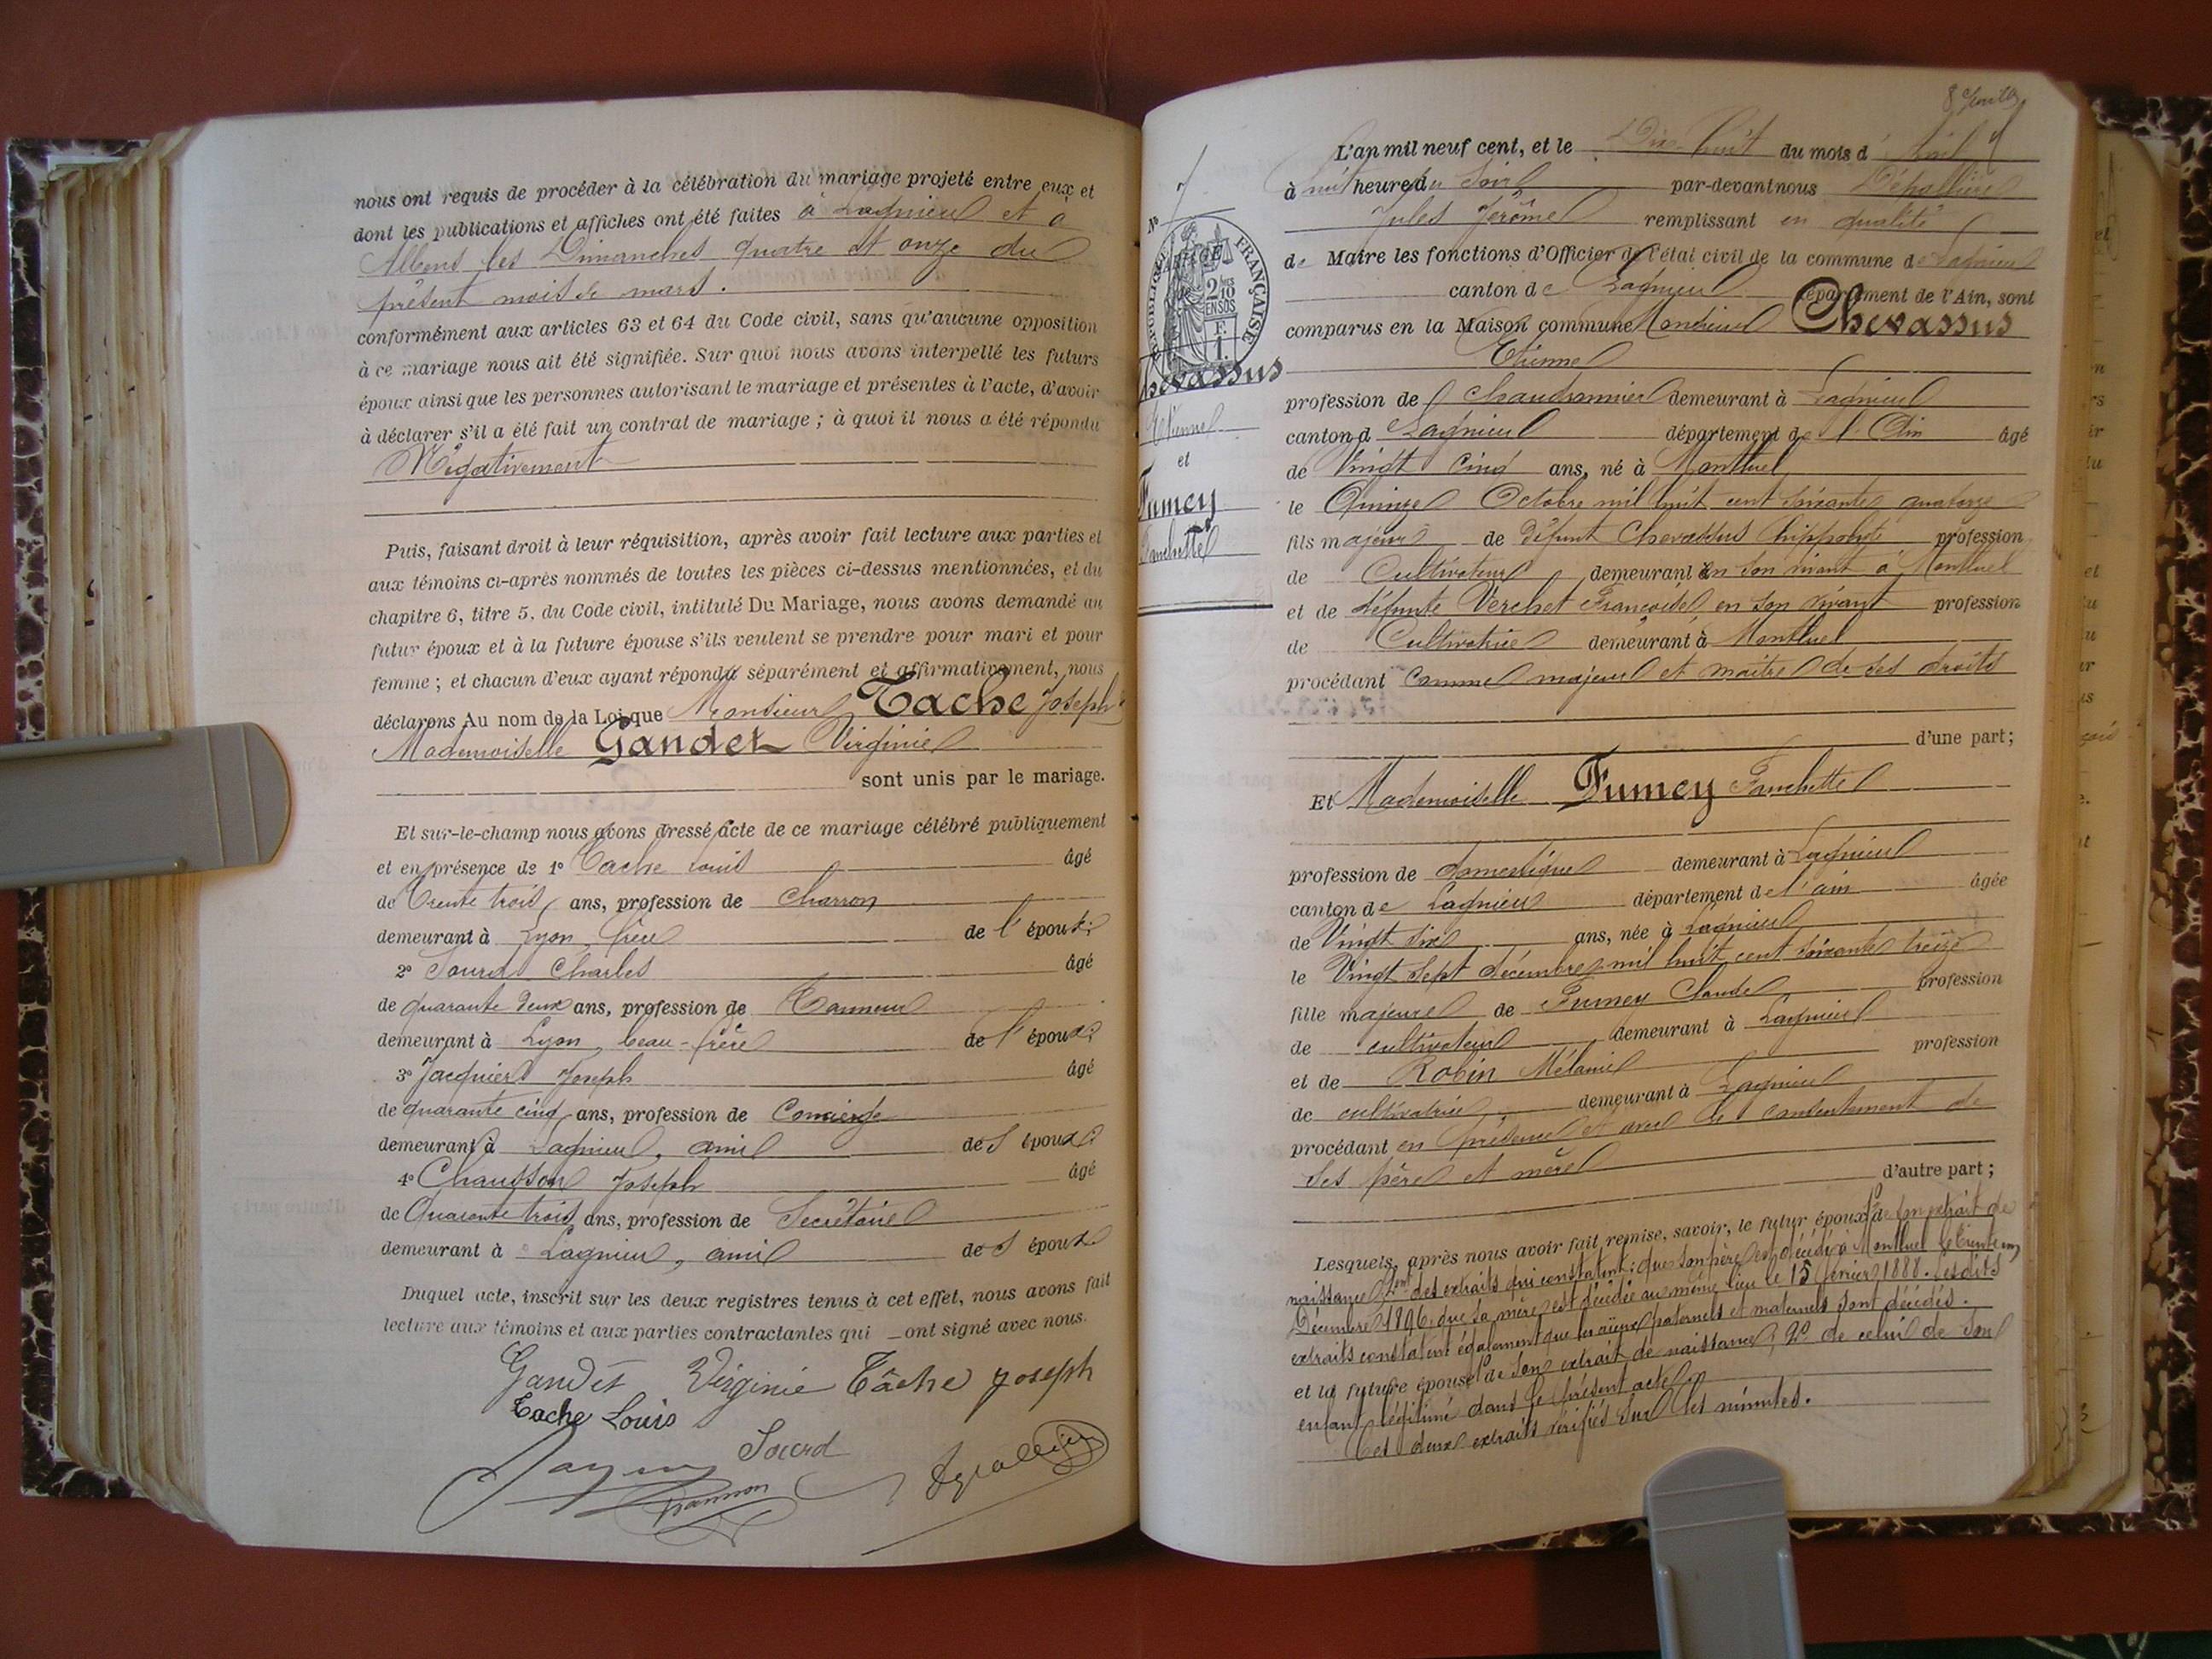 nous ont requis de procéder à la célébration du mariage projeté entre eux et
dont les publications et affiches ont été faites à Lagnieu et à
Albens les Dimanches quatre et onze du
présent mois de mars.
conformément aux articles 63 et 64 du Code civil, sans qu'aucune opposition
à ce mariage nous ait été signifiée. Sur quoi nous avons interpellé les futurs
époux ainsi que les personnes autorisant le mariage et présentes à l'acte, d'avoir
à déclarer s'il a été fait un contrat de mariage ; à quoi il nous a été répondu
Négativement
Puis, faisant droit à leur réquisition, après avoir fait lecture aux parties et
aux témoins ci-après nommés de toutes les pièces ci-dessus mentionnées, et du
chapitre 6, titre 5, du Code civil, intitulé Du Mariage, nous avons demandé au
futur époux et à la future épouse s'ils veulent se prendre pour mari et pour
femme ; et chacun d'eux ayant répondu séparément et affirmativement, nous
déclarons Au nom de la Loi que Monsieur Tache Joseph
Mademoiselle Gandet Virginie
sont unis par le mariage.
Et sur-le-champ nous avons dressé acte de ce mariage célébré publiquement
et en présence de 1º Tache Louis âgé
de Trente trois ans, profession de Charron
demeurant à Lyon, frère de l'époux
2º Sourd Charles âgé
de quarante deux ans, profession de Tanneur
demeurant à Lyon, beau-frère de l'époux
3º Jacquier Joseph âgé
de quarante cinq ans, profession de Concierge
demeurant à Lagnieu, ami des époux
4º Chausson Joseph âgé
de Quarante trois ans, profession de Secrétaire
demeurant à Lagnieu, ami des époux
Duquel acte, inscrit sur les deux registres tenus à cet effet, nous avons fait
lecture aux témoins et aux parties contractantes qui ont signé avec nous.
Gandet Virginie Tâche Joseph
Tache Louis
Sourd
Nº 7
RÉPUBLIQUE FRANÇAISE
2/10
EN SUS
F.
1.
Chevassus
Etienne
et
Fumey
Fanchette
L'an mil neuf cent, et le Dix huit du mois d'Avril
à huit heures du Soir par-devant nous Dépollier
Jules Jérôme remplissant en qualité
de Maire les fonctions d'Officier de l'état civil de la commune de Lagnieu
canton de Lagnieu département de l'Ain, sont
comparus en la Maison commune Monsieur Chevassus
Etienne
profession de Chaudronnier demeurant à Lagnieu
canton d Lagnieu département de l'Ain âgé
de Vingt Cinq ans, né à Montluel
le Quinze Octobre mil huit cent soixante quatorze
fils majeur de défunt Chevassus hippolyte profession
de Cultivateur demeurant en son vivant à Montluel
et de défunte Verchet Françoise en son vivant profession
de Cultivatrice demeurant à Montluel
procédant comme majeur et maître de ses droits
d'une part;
Et Mademoiselle Fumey Fanchette
profession de domestique demeurant à Lagnieu
canton de Lagnieu département de l'ain âgée
de Vingt six ans, née à Lagnieu
le Vingt sept décembre mil huit cent soixante treize
fille majeure de Fumey Claude profession
de cultivateur demeurant à Lagnieu
et de Robin Mélanie profession
de cultivatrice demeurant à Lagnieu
procédant en présence et avec le consentement de
ses père et mère d'autre part;
Lesquels, après nous avoir fait remise, savoir, le futur époux 1º de son extrait de
naissance 2º des extraits qui constatent: que son père est décédé à Montluel le trente un
Décembre 1896, que sa mère est décédée au même lieu le 15 février 1888. lesdits
extraits constatent également que les aïeux paternels et maternels sont décédés.
et la future épouse 1º de son extrait de naissance, 2º de celui de son
enfant légitimé dans le présent acte.
Ces deux extraits vérifiés sur les minutes.